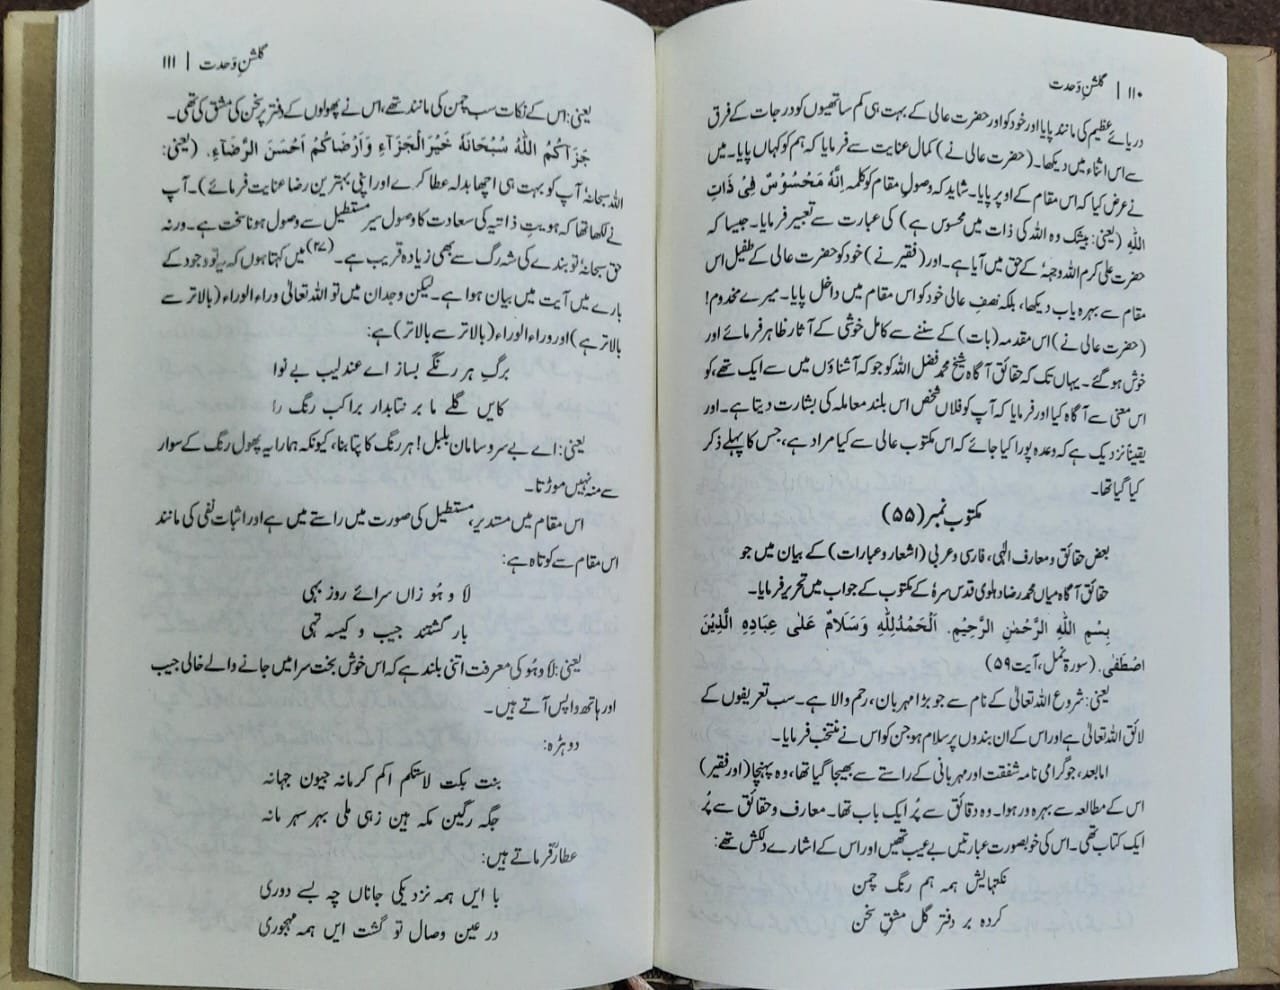 ۱۱۰ | گلشنِ وَحدت
دریائے عظیم کی مانند پایا اور خود کو اور حضرت عالی کے بہت ہی کم ساتھیوں کو درجات کے فرق
سے اس اثناء میں دیکھا۔ (حضرت عالی نے) کمال عنایت سے فرمایا کہ ہم کو کہاں پایا۔ میں
نے عرض کیا کہ اس مقام کے اوپر پایا۔ شاید کہ وصولِ مقام کو کلمہ اِنَّهٗ مَحْسُوْسٌ فِیْ ذَاتِ
اللّٰهِ (یعنی: بیشک وہ اللہ کی ذات میں محسوس ہے) کی عبارت سے تعبیر فرمایا۔ جیسا کہ
حضرت علی کرم اللہ وجہہٗ کے حق میں آیا ہے۔ اور (فقیر نے) خود کو حضرت عالی کے طفیل اس
مقام سے بہرہ یاب دیکھا، بلکہ نصفِ عالی خود کو اس مقام میں داخل پایا۔ میرے مخدوم!
(حضرت عالی نے) اس مقدمہ (بات) کے سننے سے کامل خوشی کے آثار ظاہر فرمائے اور
خوش ہوگئے۔ یہاں تک کہ حقائق آگاہ شیخ محمد فضل اللہ کو جو کہ آشناؤں میں سے ایک تھے، کو
اس معنی سے آگاہ کیا اور فرمایا کہ آپ کو فلاں شخص اس بلند معاملہ کی بشارت دیتا ہے۔ اور
یقیناً نزدیک ہے کہ وعدہ پورا کیا جائے کہ اس مکتوب عالی سے کیا مراد ہے، جس کا پہلے ذکر
کیا گیا تھا۔
مکتوب نمبر (۵۵)
بعض حقائق و معارف الٰہی، فارسی و عربی (اشعار و عبارات) کے بیان میں جو
حقائق آگاہ میاں محمد رضا دہلوی قدس سرہٗ کے مکتوب کے جواب میں تحریر فرمایا۔
بِسْمِ اللّٰهِ الرَّحْمٰنِ الرَّحِیْمِ. اَلْحَمْدُلِلّٰهِ وَسَلَامٌ عَلٰی عِبَادِهِ الَّذِیْنَ
اصْطَفٰی. (سورۃ نمل، آیت ۵۹)
یعنی: شروع اللہ تعالیٰ کے نام سے جو بڑا مہربان، رحم والا ہے۔ سب تعریفوں کے
لائق اللہ تعالیٰ ہے اور اس کے ان بندوں پر سلام ہو جن کو اس نے منتخب فرمایا۔
اما بعد، جو گرامی نامہ شفقت اور مہربانی کے راستے سے بھیجا گیا تھا، وہ پہنچا (اور فقیر)
اس کے مطالعہ سے بہرہ ور ہوا۔ وہ دقائق سے پُر ایک باب تھا۔ معارف و حقائق سے پُر
ایک کتاب تھی۔ اس کی خوبصورت عبارتیں بے عیب تھیں اور اس کے اشارے دلکش تھے:
نکتہایش ہمہ ہم رنگ چمن
کردہ بر دفتر گل مشقِ سخن
گلشنِ وَحدت | ۱۱۱
یعنی: اس کے نکات سب چمن کی مانند تھے، اس نے پھولوں کے دفتر پر سخن کی مشق کی تھی۔
جَزَآکُمُ اللّٰهُ سُبْحَانَهٗ خَیْرَالْجَزَآءِ وَاَرْضَاکُمُ اَحْسَنَ الرِّضَآءِ. (یعنی:
اللہ سبحانہٗ آپ کو بہت ہی اچھا بدلہ عطا کرے اور اپنی بہترین رضا عنایت فرمائے)۔ آپ
نے لکھا تھا کہ ہویتِ ذاتیہ کی سعادت کا وصول سیرِ مستطیل سے وصول ہونا سخت ہے۔ ورنہ
حق سبحانہٗ تو بندے کی شہ رگ سے بھی زیادہ قریب ہے۔(۲۷) میں کہتا ہوں کہ یہ تو وجود کے
بارے میں آیت میں بیان ہوا ہے۔ لیکن وجدان میں تو اللہ تعالیٰ وراء الوراء (بالاتر سے
بالاتر ہے) اور وراء الوراء (بالاتر سے بالاتر) ہے:
برگِ ہر رنگے بساز اے عندلیب بے نوا
کایں گلے ما بر نتابدار براکب رنگ را
یعنی: اے بے سروسامان بلبل! ہر رنگ کا پتا بنا، کیونکہ ہمارا یہ پھول رنگ کے سوار
سے منہ نہیں موڑتا۔
اس مقام میں مستدیر، مستطیل کی صورت میں راستے میں ہے اور اثبات نفی کی مانند
اس مقام سے کوتاہ ہے:
لا و ہُو زاں سرائے روز بہی
باز گشتند جیب و کیسہ تہی
یعنی: لَا وہُو کی معرفت اتنی بلند ہے کہ اس خوش بخت سرا میں جانے والے خالی جیب
اور ہاتھ واپس آتے ہیں۔
دوہڑہ:
بنت بکت لاستکم اکم کرمانہ جیون جہانہ
جگہ رگین مکہ ہین زہی ملی بہر سہر مانہ
عطارؒ فرماتے ہیں:
با ایں ہمہ نزدیکی جاناں چہ بسے دوری
در عین وصال تو گشت ایں ہمہ مہجوری